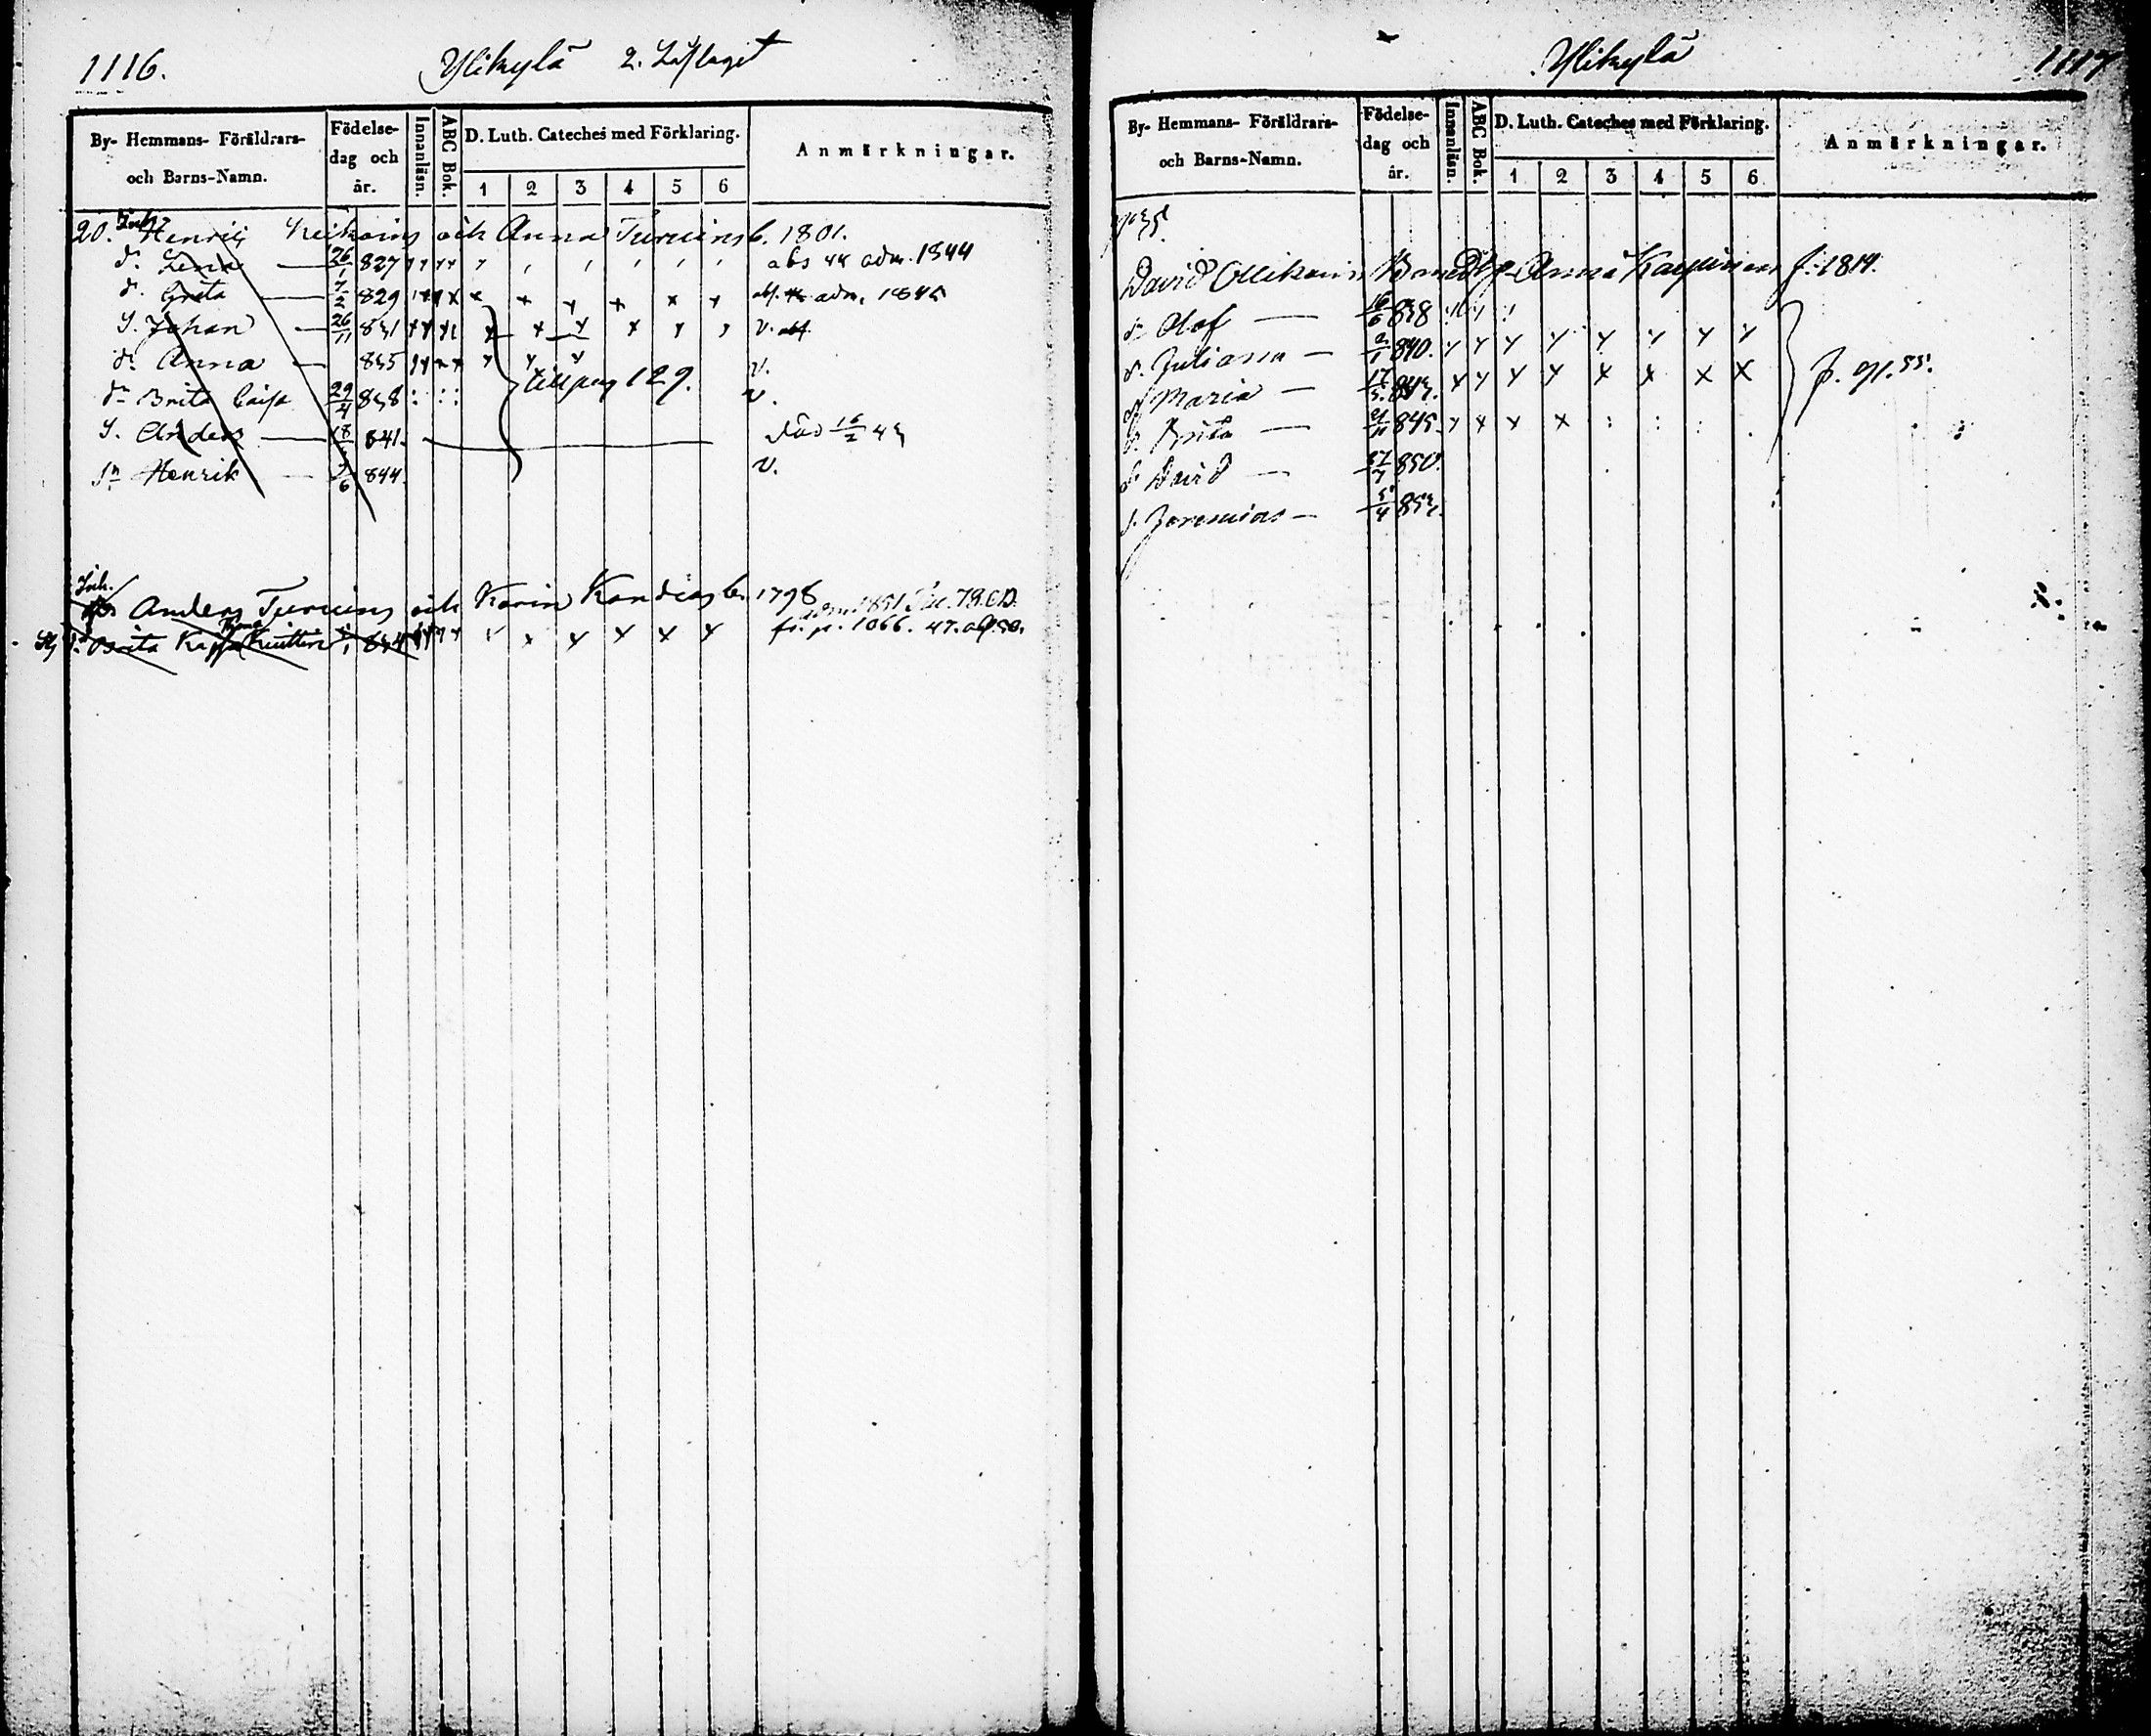 1116. Ylikylä 2. Läslaget
By- Hemmans- Föräldrars- och Barns-Namn. Födelse-dag och år. Innanläsn. ABC Bok. D. Luth. Cateches med Förklaring. 1 2 3 4 5 6 Anmärkningar.
20. Inh. Henric och Anna b. 1801.
d. Lena — 26/1 827 abs 44 adm. 1844
d. Greta — 7/2 829 abs. adm. 1845
S. Johan — 26/11 831 v. abs.
d. Anna — 835 v.
dr Brita Caisa 29/4 838 till pag 129. v.
S. Anders — 18 841. död 16/2 43
Sn Henrik — 6 844. v.
Inh.
Anders och Karin b. 1798
adm. 1851
Brita 834 fr. p. 1066. 47.
Ylikylä 1117
By- Hemmans- Föräldrars- och Barns-Namn. Födelse-dag och år. Innanläsn. ABC Bok. D. Luth. Cateches med Förklaring. 1 2 3 4 5 6 Anmärkningar.
David Ollikain Anna f. 1814.
Olof — 16/6 838
d. Juliana — 2/1 840.
Maria — 17/5 843. p. 91. 55.
d. Brita — 845.
s. David — 27/7 850.
s. Jeremias — 5/4 853.